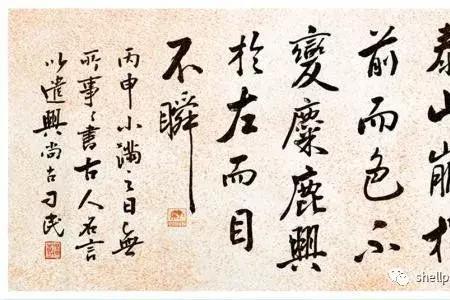 泰山崩於
前而色不
變麋鹿興
於左而目
不瞬
丙申小滿之日無
所事々書古人名言
以遣興尚古刁民
shellp